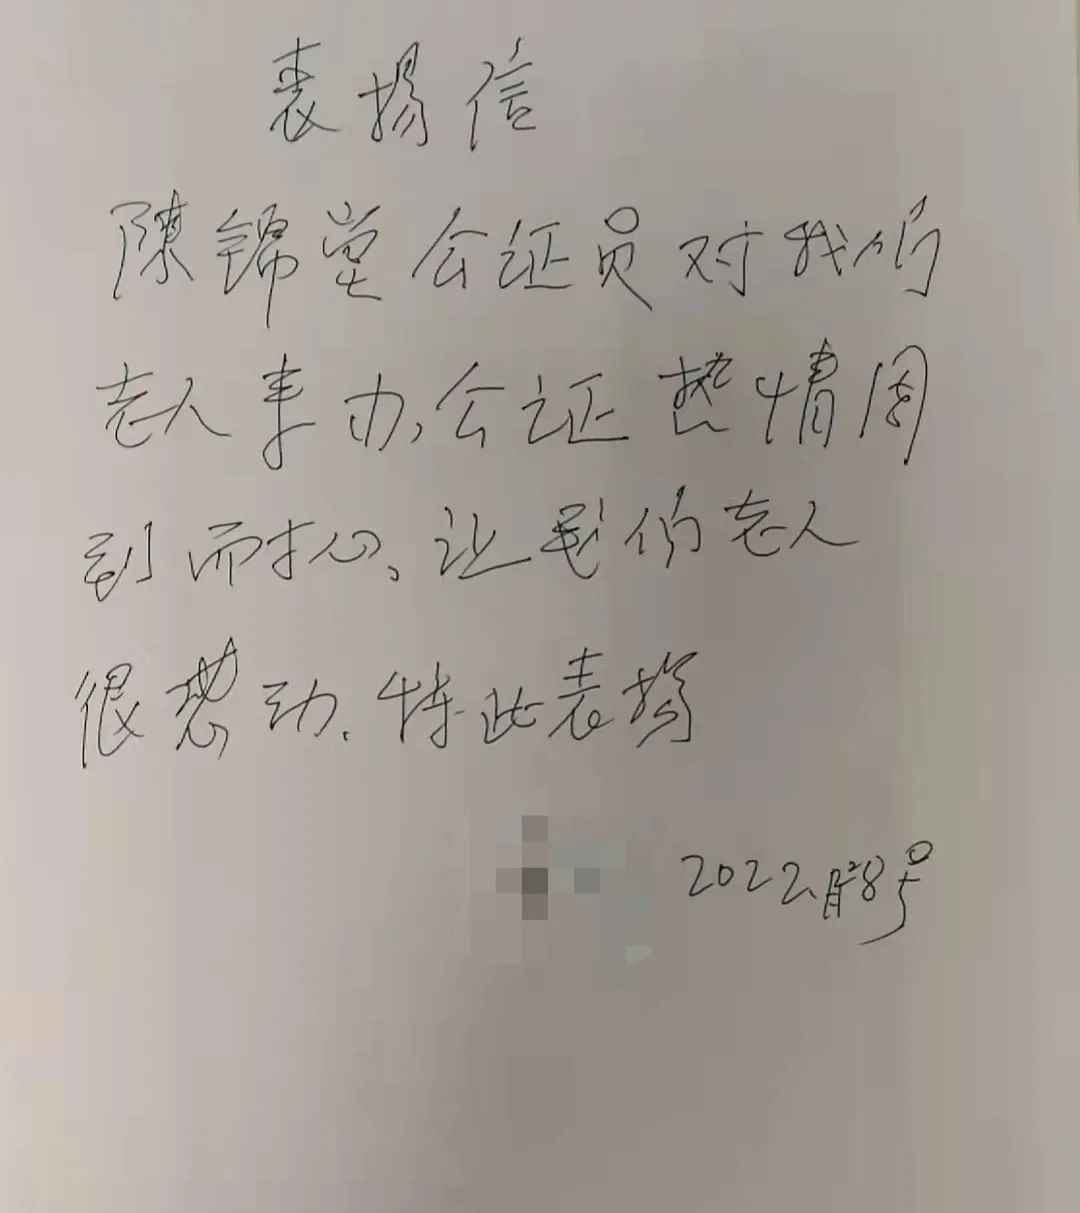 表揚信
陳锦堂公证员对我们
老人来办,公证热情周
到而才心、让我们老人
很感动.特此表揚
2022.
8号